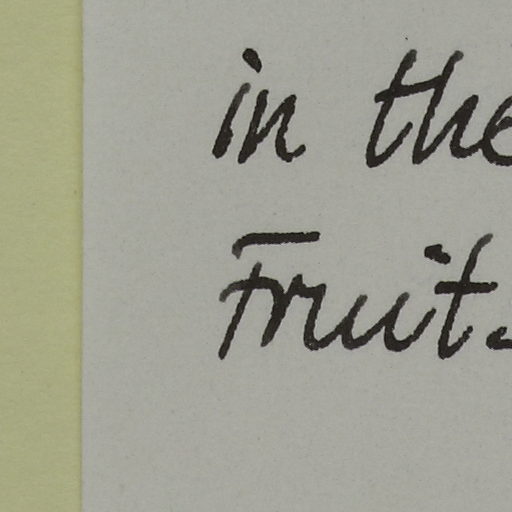 in the
Fruit.